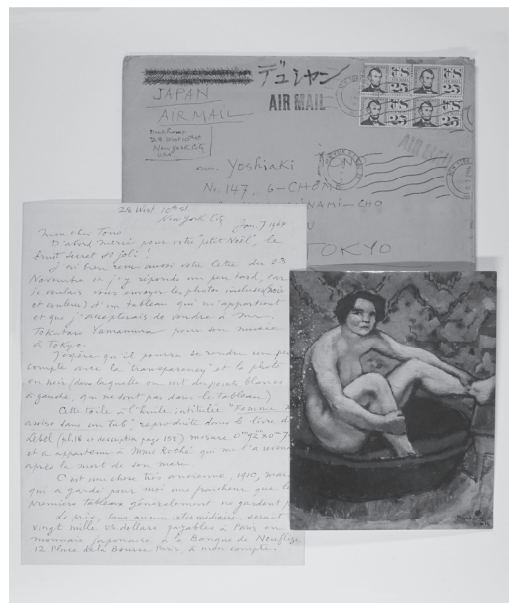 デュシャン
JAPAN
AIR MAIL
AIR MAIL
AIR MAIL
Duchamp
28 West 10th St
New York City
USA
Yoshiaki TONO
No. 147, 6-CHOME
MINAMI-CHO
TOKYO
U.S. 25
U.S. 25
U.S. 25
U.S. 25
28 West 10th St.
New York City Jan. 7 1964
Mon cher Tono!
D'abord merci pour votre "petit Noël", le
fruit secret et joli!
J'ai bien reçu aussi votre lettre du 23
Novembre et j'y réponds un peu tard, car
je voulais vous envoyer les photos incluses (noir
et couleur) d'un tableau qui m'appartient
et que j'accepterais de vendre à Mr.
Tokutaro Yamamura pour son musée
à Tokyo.
J'espère qu'il pourra se rendre un peu
compte avec la "transparency" et la photo
en noir (dans laquelle on voit des points blancs
à gauche, qui ne sont pas dans le tableau)
Cette toile à l'huile intitulée "Femme
assise dans un tub", reproduite dans le livre de
Lebel (pl. 18 et description page 159) mesure
et a appartenu à Mme Roché qui me l'a
après la mort de son mari.
C'est une chose très ancienne, 1910, mais
qui a gardé pour moi une fraîcheur que les
premiers tableaux généralement ne gardent
Le prix, sans aucun intermédiaire, serait
vingt mille US dollars payables à Paris en
monnaie japonaise à la Banque de Neuflize
12 Place de la Bourse Paris, à mon compte.